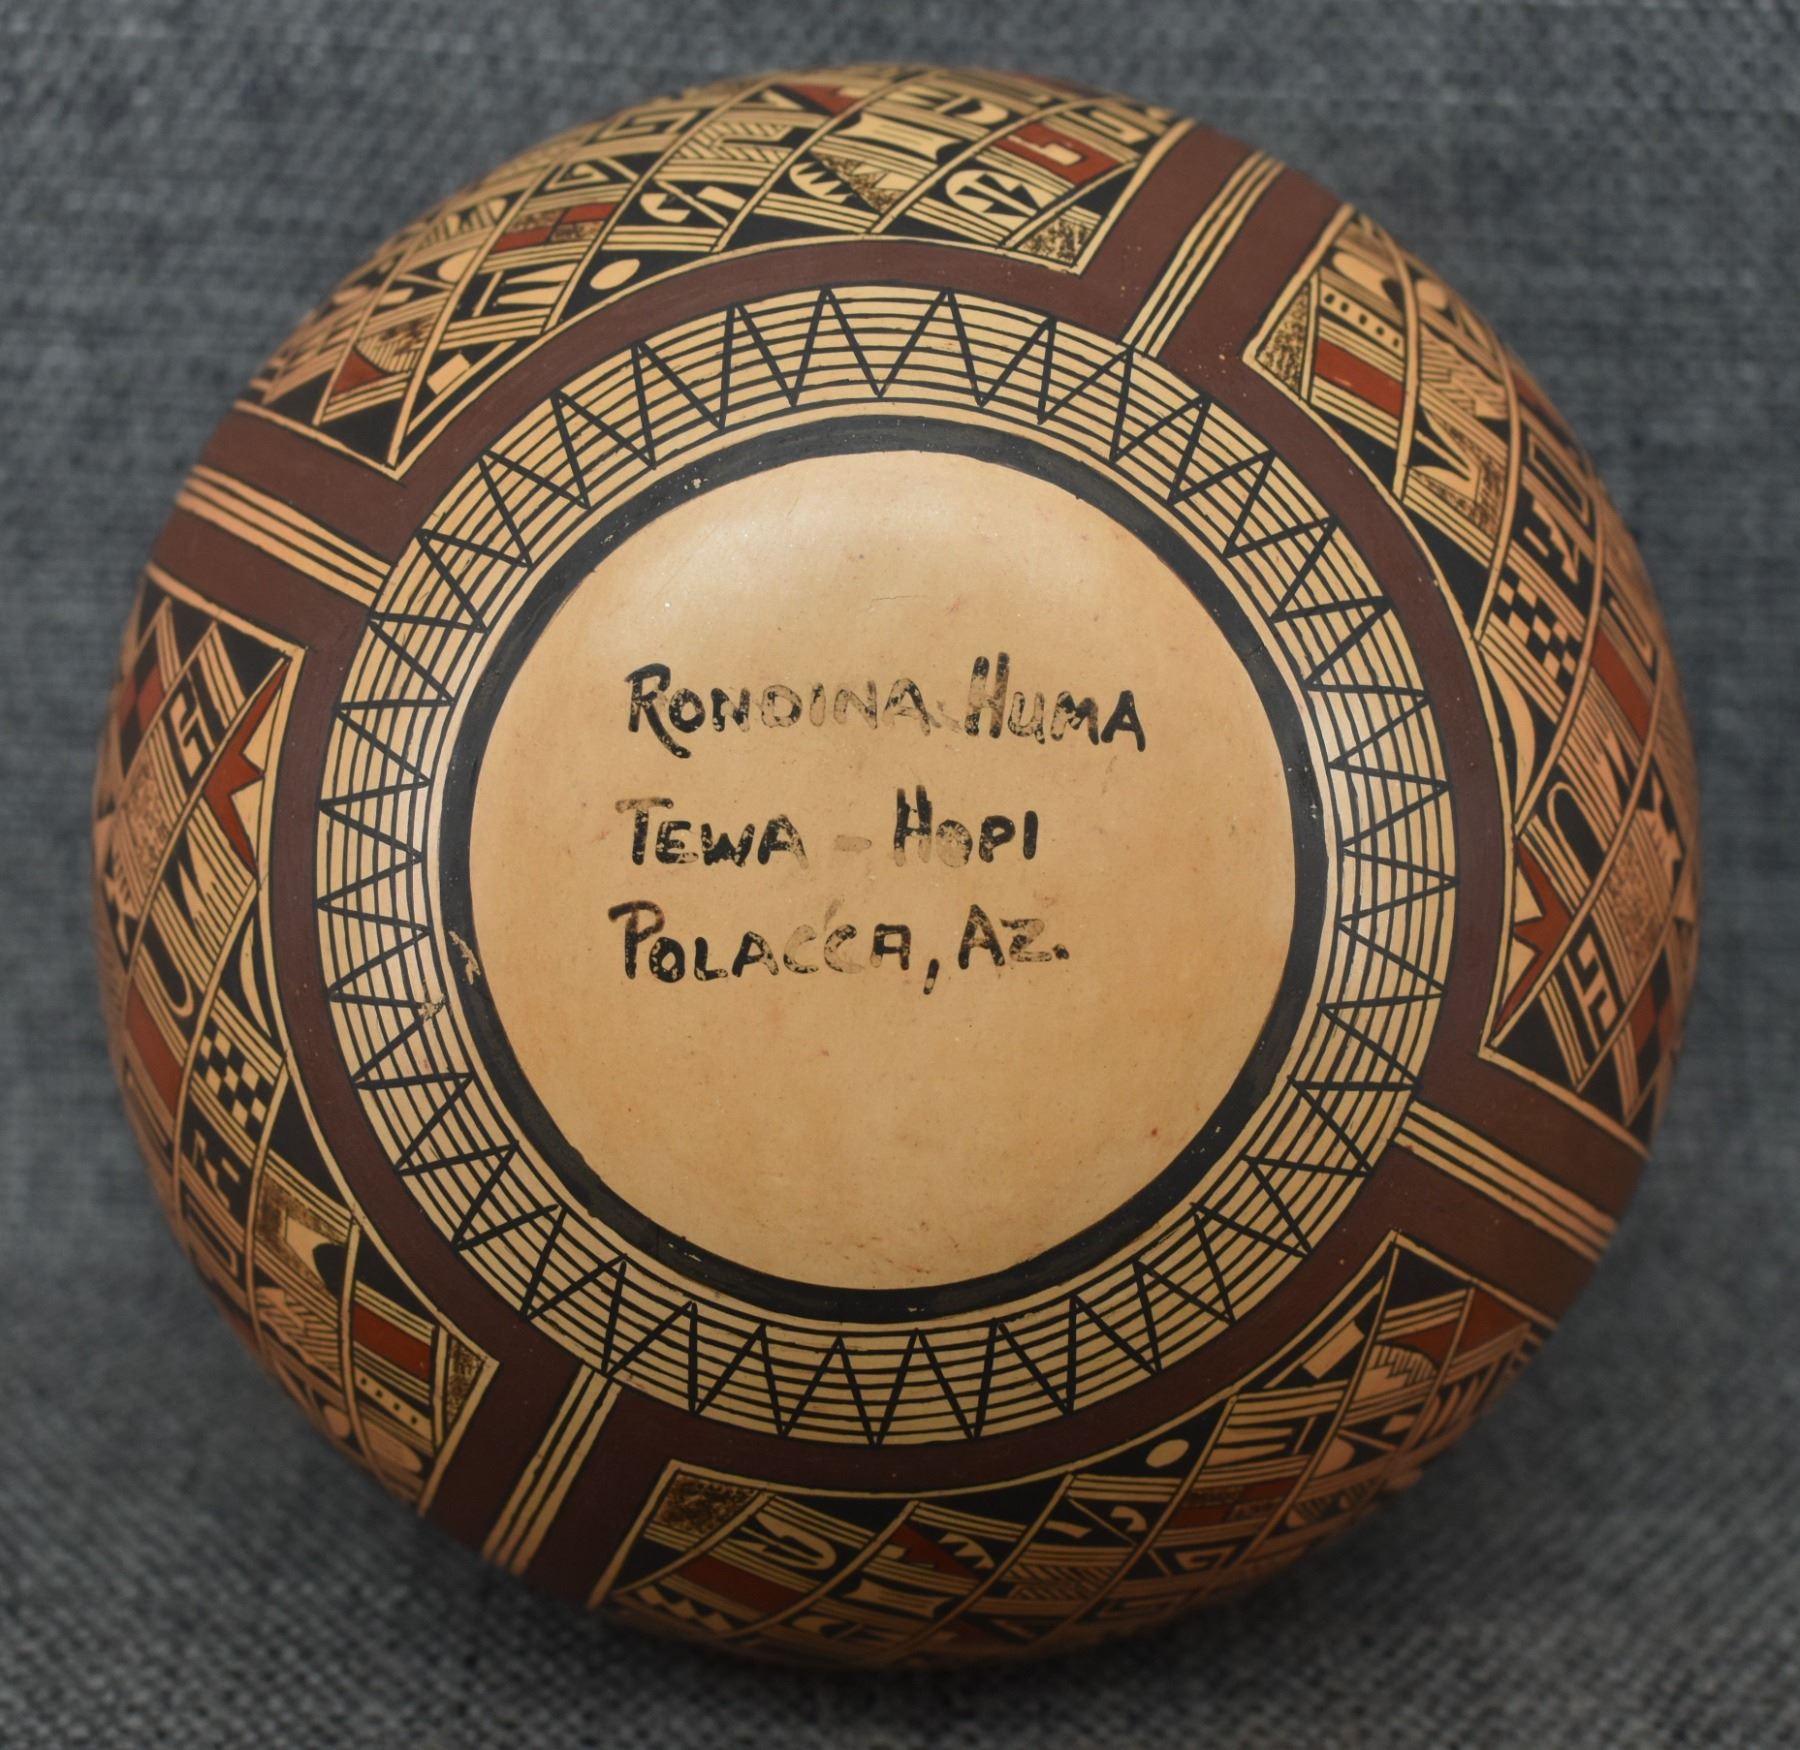 RONDINA HUMA
TEWA - HOPI
POLACCA, AZ.